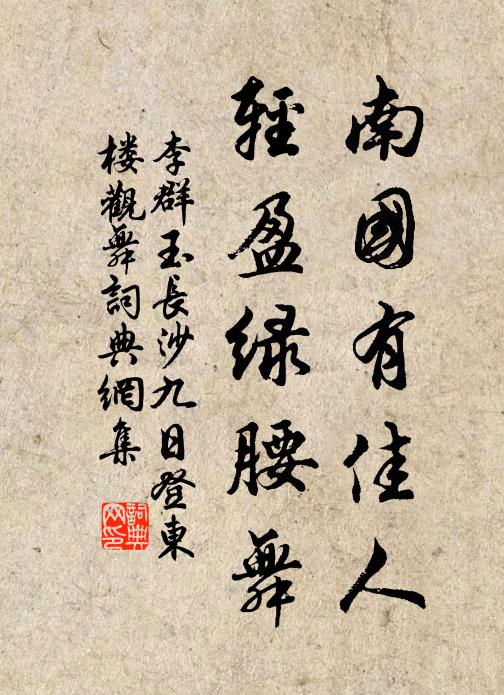 南國有佳人
輕盈绿腰舞
李群玉長沙九日登東
楼觀舞詞典網集
詞典
网印